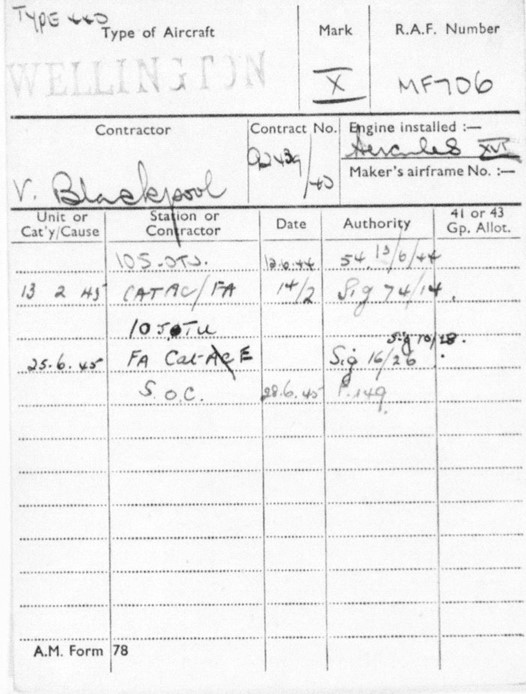 TYPE 440
Type of Aircraft Mark R.A.F. Number
WELLINGTON X MF706
Contractor Contract No. Engine installed :—
Hercules XVI
V. Blackpool /40 Maker's airframe No. :—
Unit or Cat'y/Cause Station or Contractor Date Authority 41 or 43 Gp. Allot.
105. OTU. 12.6.44 54 13/6/44
13 2 45 CAT AC/FA 14/2 Sig 74/14.
105 OTU
Sig 10/28.
25.6.45 FA Cat AC E Sig 16/26.
S.O.C. 28.6.45 P.149
A.M. Form 78